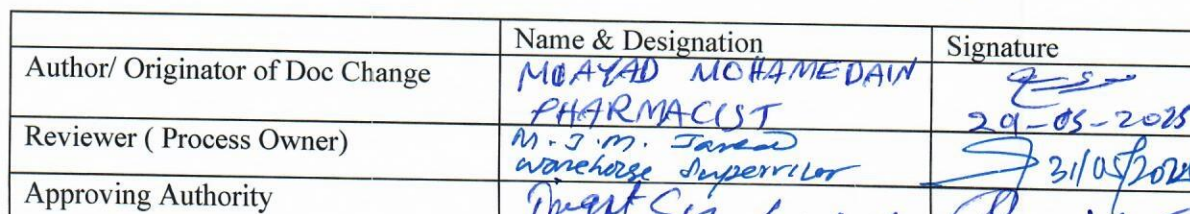 Name & Designation Signature
Author/ Originator of Doc Change MOAYAD MOHAMEDAIN
PHARMACIST 29-05-2025
Reviewer ( Process Owner) M.J.M.
warehouse Supervisor 31/05/
Approving Authority